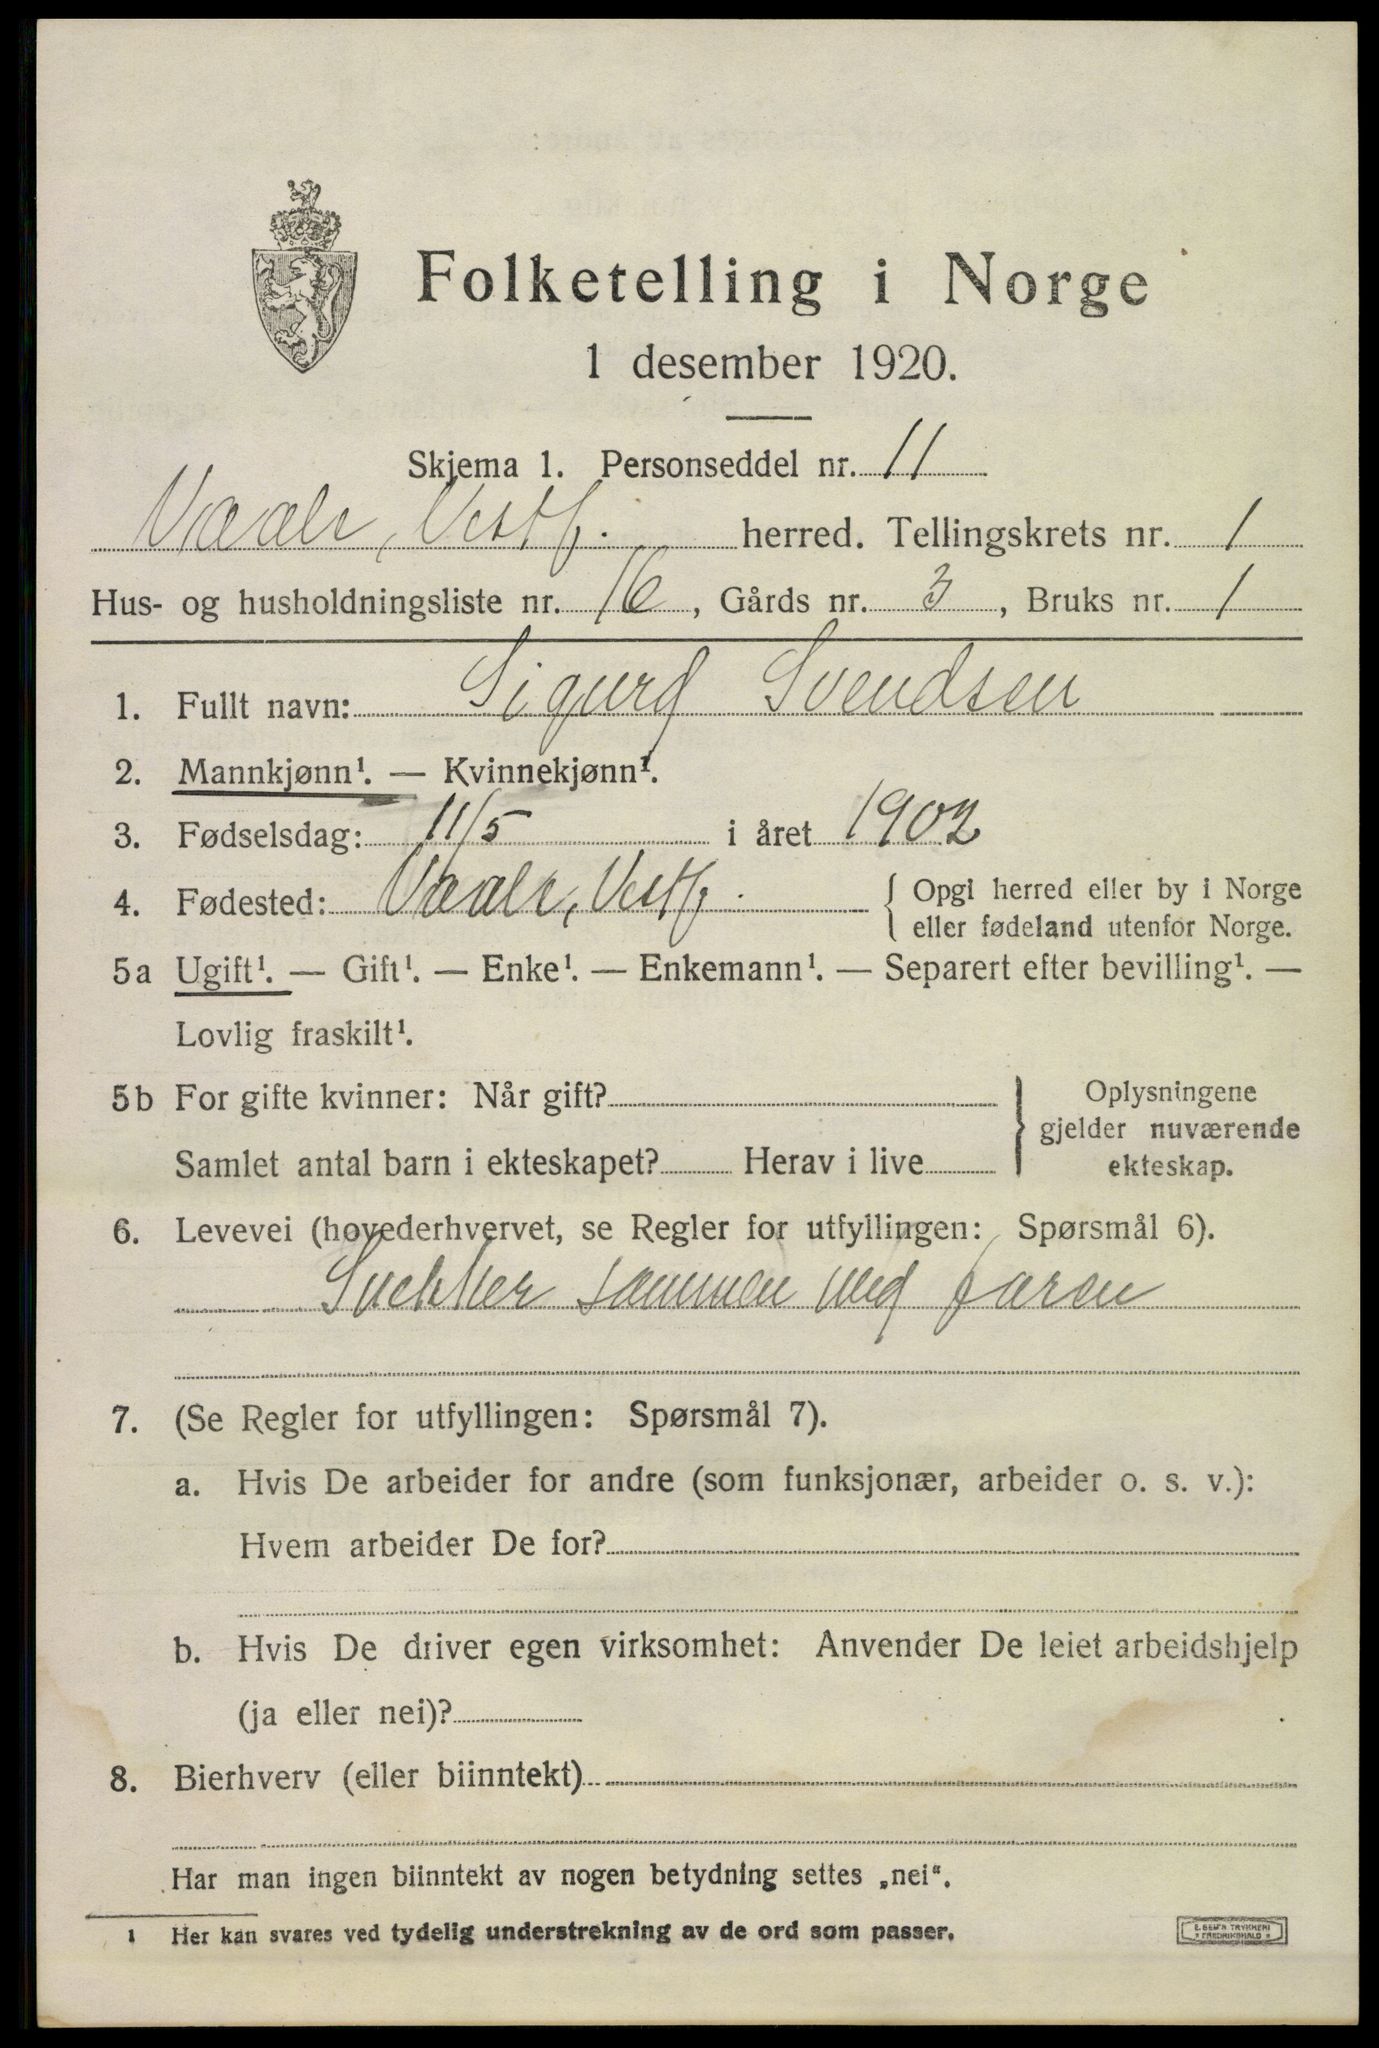 Folketelling i Norge
1 desember 1920.
Skjema 1. Personseddel nr. 11
Vaale, Vestf. herred. Tellingskrets nr. 1
Hus- og husholdningsliste nr. 16, Gårds nr. 3, Bruks nr. 1
1. Fullt navn: Sigurd Svendsen
2. Mannkjønn¹. — Kvinnekjønn¹.
3. Fødselsdag: 11/5 i året 1902
4. Fødested: Vaale, Vestf. { Opgi herred eller by i Norge
eller fødeland utenfor Norge.
5a Ugift¹. — Gift¹. — Enke¹. — Enkemann¹. — Separert efter bevilling¹. —
Lovlig fraskilt¹.
5b For gifte kvinner: Når gift?
Samlet antal barn i ekteskapet? Herav i live
} Oplysningene
gjelder nuværende
ekteskap.
6. Levevei (hovederhvervet, se Regler for utfyllingen: Spørsmål 6).
Snekker sammen med faren
7. (Se Regler for utfyllingen: Spørsmål 7).
a. Hvis De arbeider for andre (som funksjonær, arbeider o. s. v.):
Hvem arbeider De for?
b. Hvis De driver egen virksomhet: Anvender De leiet arbeidshjelp
(ja eller nei)?
8. Bierhverv (eller biinntekt)
Har man ingen biinntekt av nogen betydning settes „nei“.
1 Her kan svares ved tydelig understrekning av de ord som passer.
E. SEM'S TRYKKERI
FREDRIKSHALD